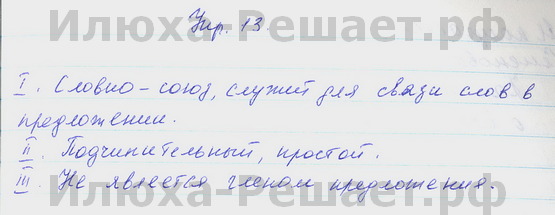 Илюха-Решает.рф
Упр. 13.
I. Словно - союз, служит для связи слов в
предложении.
II. Подчинительный, простой.
III. Не является членом предложения.
Илюха-Решает.рф